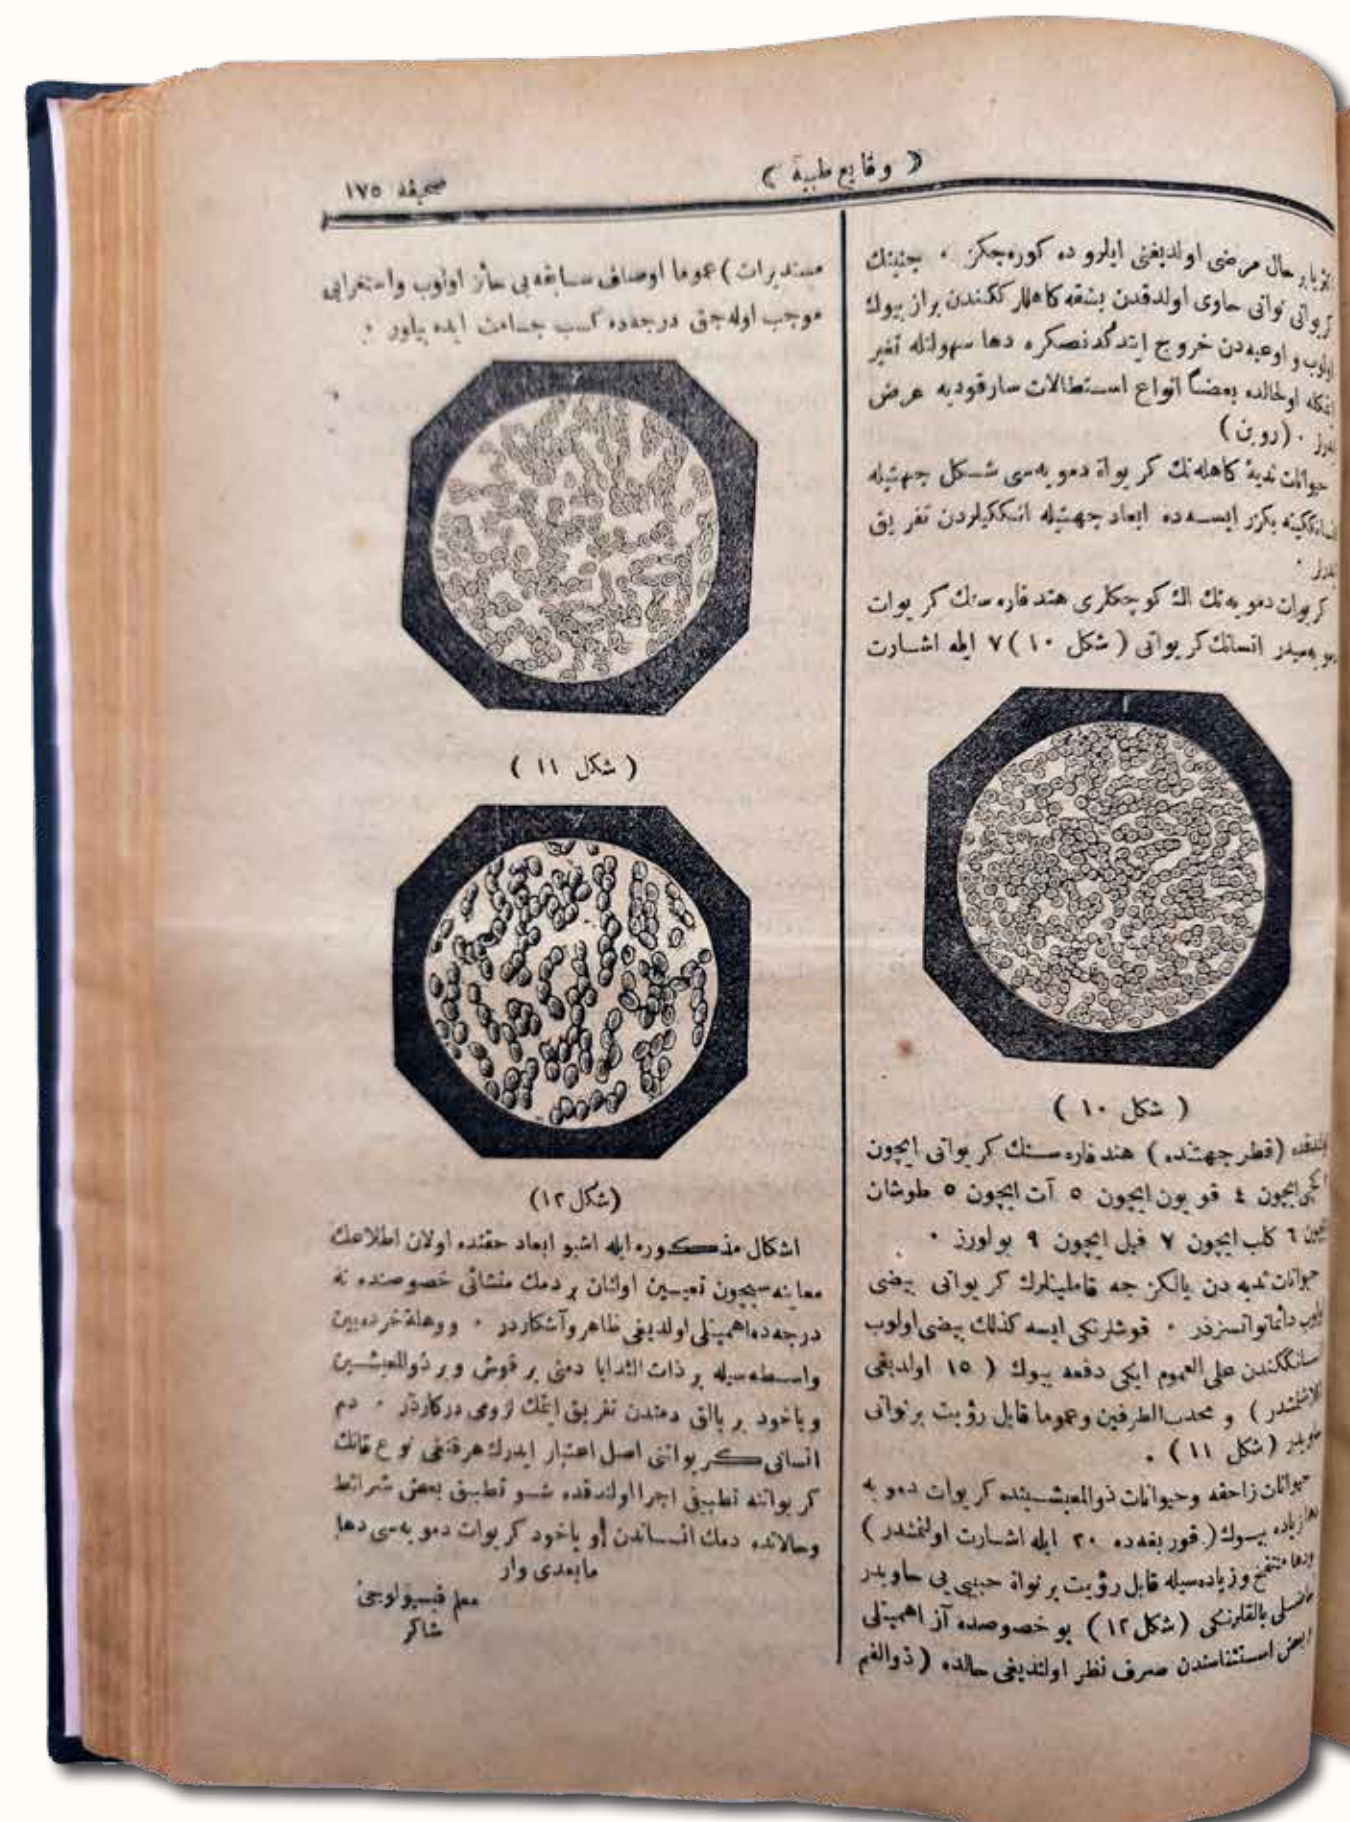 ( وقايع طبيه )
صحيفه ١٧٥
حال مرضى اولديغنى ايلروده كوره جكز ٠ جنينك
كريواتى نواتى حاوى اولدقدن بشقه كاهللر ككندن براز بيوك
اولوب و اوعيه دن خروج ايتدكدنصكره دها سهولتله تغير
ايتمكله اولحالده بعضاً انواع استطالات سارقوديه عرض
ايدرلر ٠ (روبن)
حيوانات ثديۀ كاهله نك كريواة دمويه سى شكل جهتيله
انسانككينه بكزر ايسه ده ابعاد جهتيله انسككيلردن تفريق
ايدرلر ٠
كريوات دمويه نك اك كوچكلرى هند فاره سنك كريوات
دمويه سيدر انسانك كريواتى ( شكل ١٠ ) ٧ ايله اشارت
( شكل ١٠ )
اولندقده (قطر جهتنده) هند فاره سنك كريواتى ايچون
ايچون ٤ قويون ايچون ٥ آت ايچون ٥ طوشان
ايچون ٦ كلب ايچون ٧ فيل ايچون ٩ بولورز ٠
حيوانات ثديه دن يالكز جه قامليلرك كريواتى بيضى
اولوب دائما نواتسزدر ٠ قوشلرنكى ايسه كذلك بيضى اولوب
انسانككندن على العموم ايكى دفعه بيوك ( ١٥ اولديغى
اكلاشلمشدر ) و محدب الطرفين وعموما قابل رؤيت برنواتى
حاويدر (شكل ١١) ٠
حيوانات زاحفه وحيوانات ذوالمعيشتينده كريوات دمويه
دها زياده بيوك ( قوربغه ده ٢٠ ايله اشارت اولنمشدر )
ودها منتفخ وزياده سيله قابل رؤيت برنواة حبيبى يى حاويدر
بالقلرنكى (شكل ١٢) بو خصوصده آز اهميتلى
بعض استثناسندن صرف نظر اولنديغى حالده (ذوالفم
مستديرات) عموما اوصاف سابقه يى حائز اولوب واستغرابى
موجب اوله جق درجه ده كسب جسامت ايده بيلور ٠
( شكل ١١ )
(شكل ١٢)
اشكال مذكوره ايله اشبو ابعاد حقنده اولان اطلاعك
معاينه سيچون تعيين اولنان بر دمك منشائى خصوصنده نه
درجه ده اهميتلى اولديغى ظاهر وآشكاردر ٠ ووهلةً خرده بين
واسطه سيله بر ذات الثدايا دمنى بر قوش وبر ذوالمعيشتين
وياخود بر بالق دمندن تفريق ايتمك لزومى دركاردر ٠ دم
انسانى كريواتنى اصل اعتبار ايدرك هرقنغى نوع قانك
كريواتنه تطبيق اجرا اولندقده شو تطبيق بعض شرائط
وحالاتده دمك انساندن او ياخود كريوات دمويه سى دها
مابعدى وار
معلم فيسيولوجى
شاكر